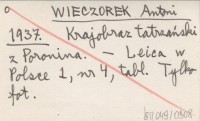 WIECZOREK Antoni
1937. Krajobraz tatrzański
z Poronina. – Leica w
Polsce 1, nr 4, tabl. Tylko
fot.